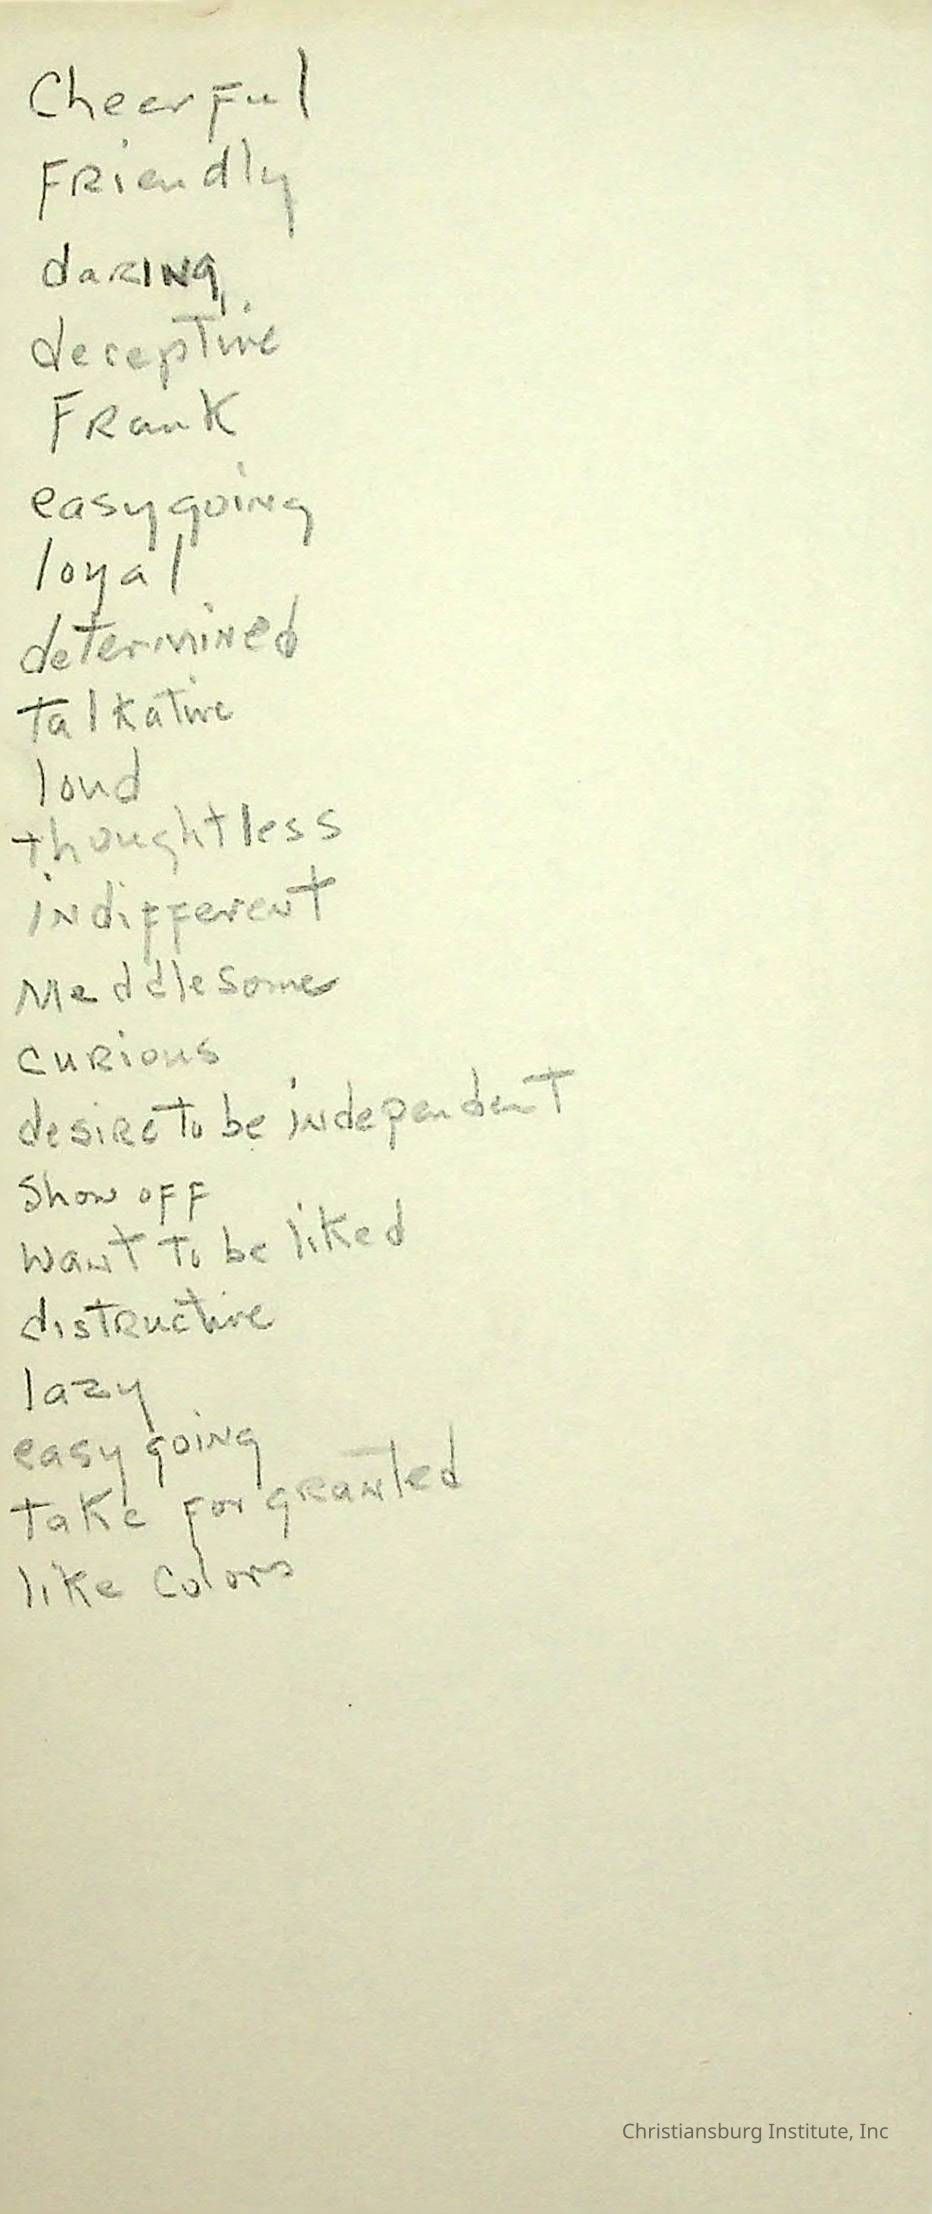 Cheerful
Friendly
daring
deceptive
Frank
easygoing
loyal
determined
talkative
loud
thoughtless
indifferent
Meddlesome
curious
desire to be independent
Show off
want to be liked
distructive
lazy
easy going
take for granted
like colors
Christiansburg Institute, Inc